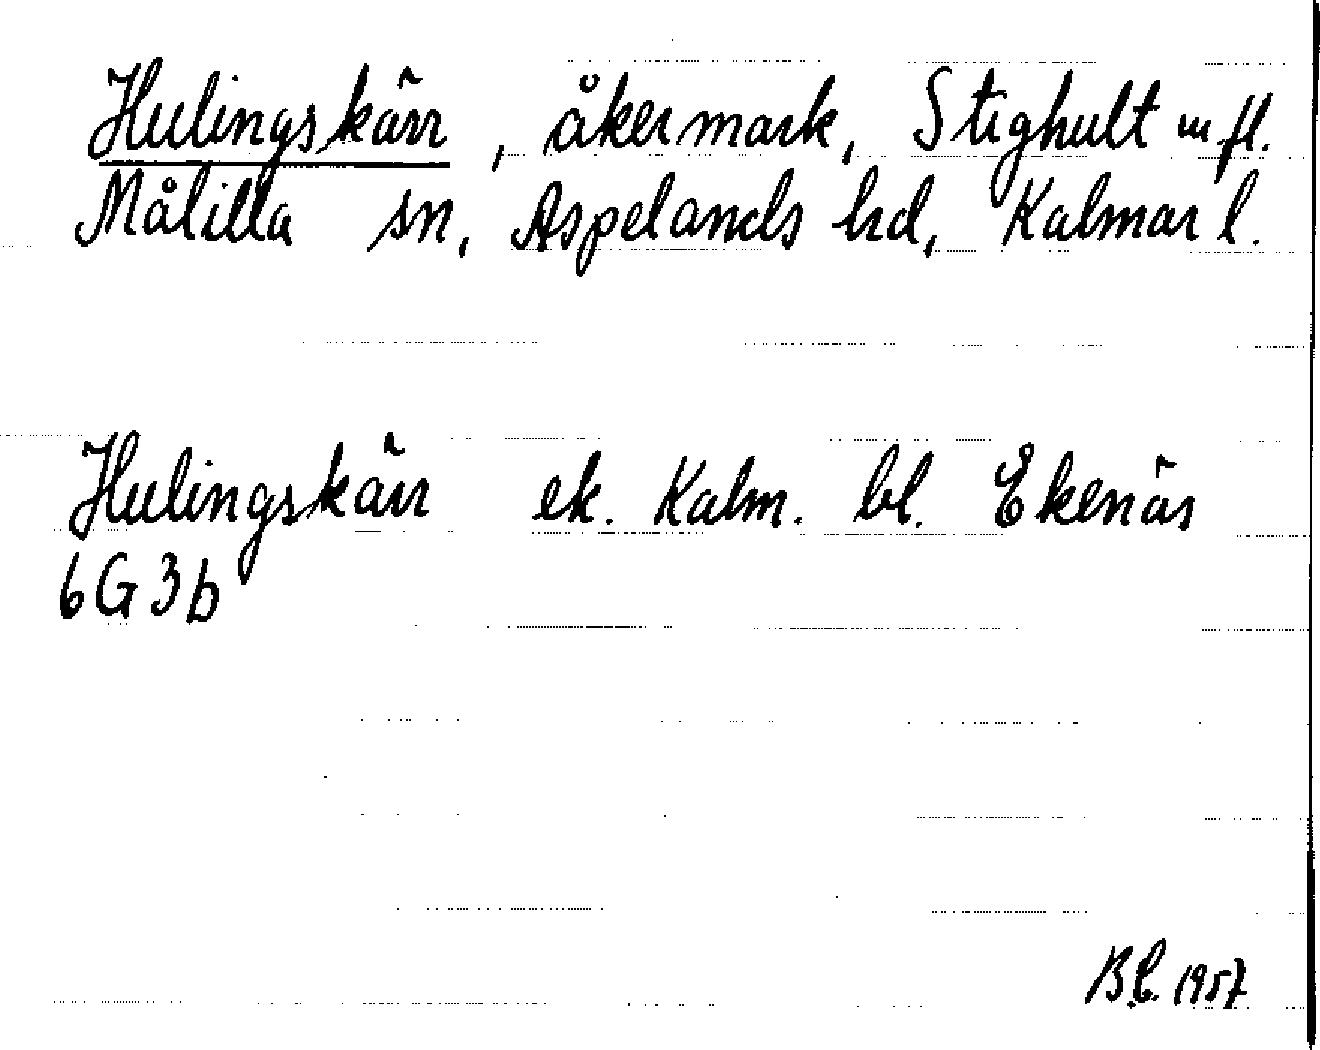 Hulingskärr, åkermark, Stighult m.fl.
Målilla sn, Aspelands hd, Kalmar l.
Hulingskärr ek. Kalm. bl. Ekenäs
6G3b
1957